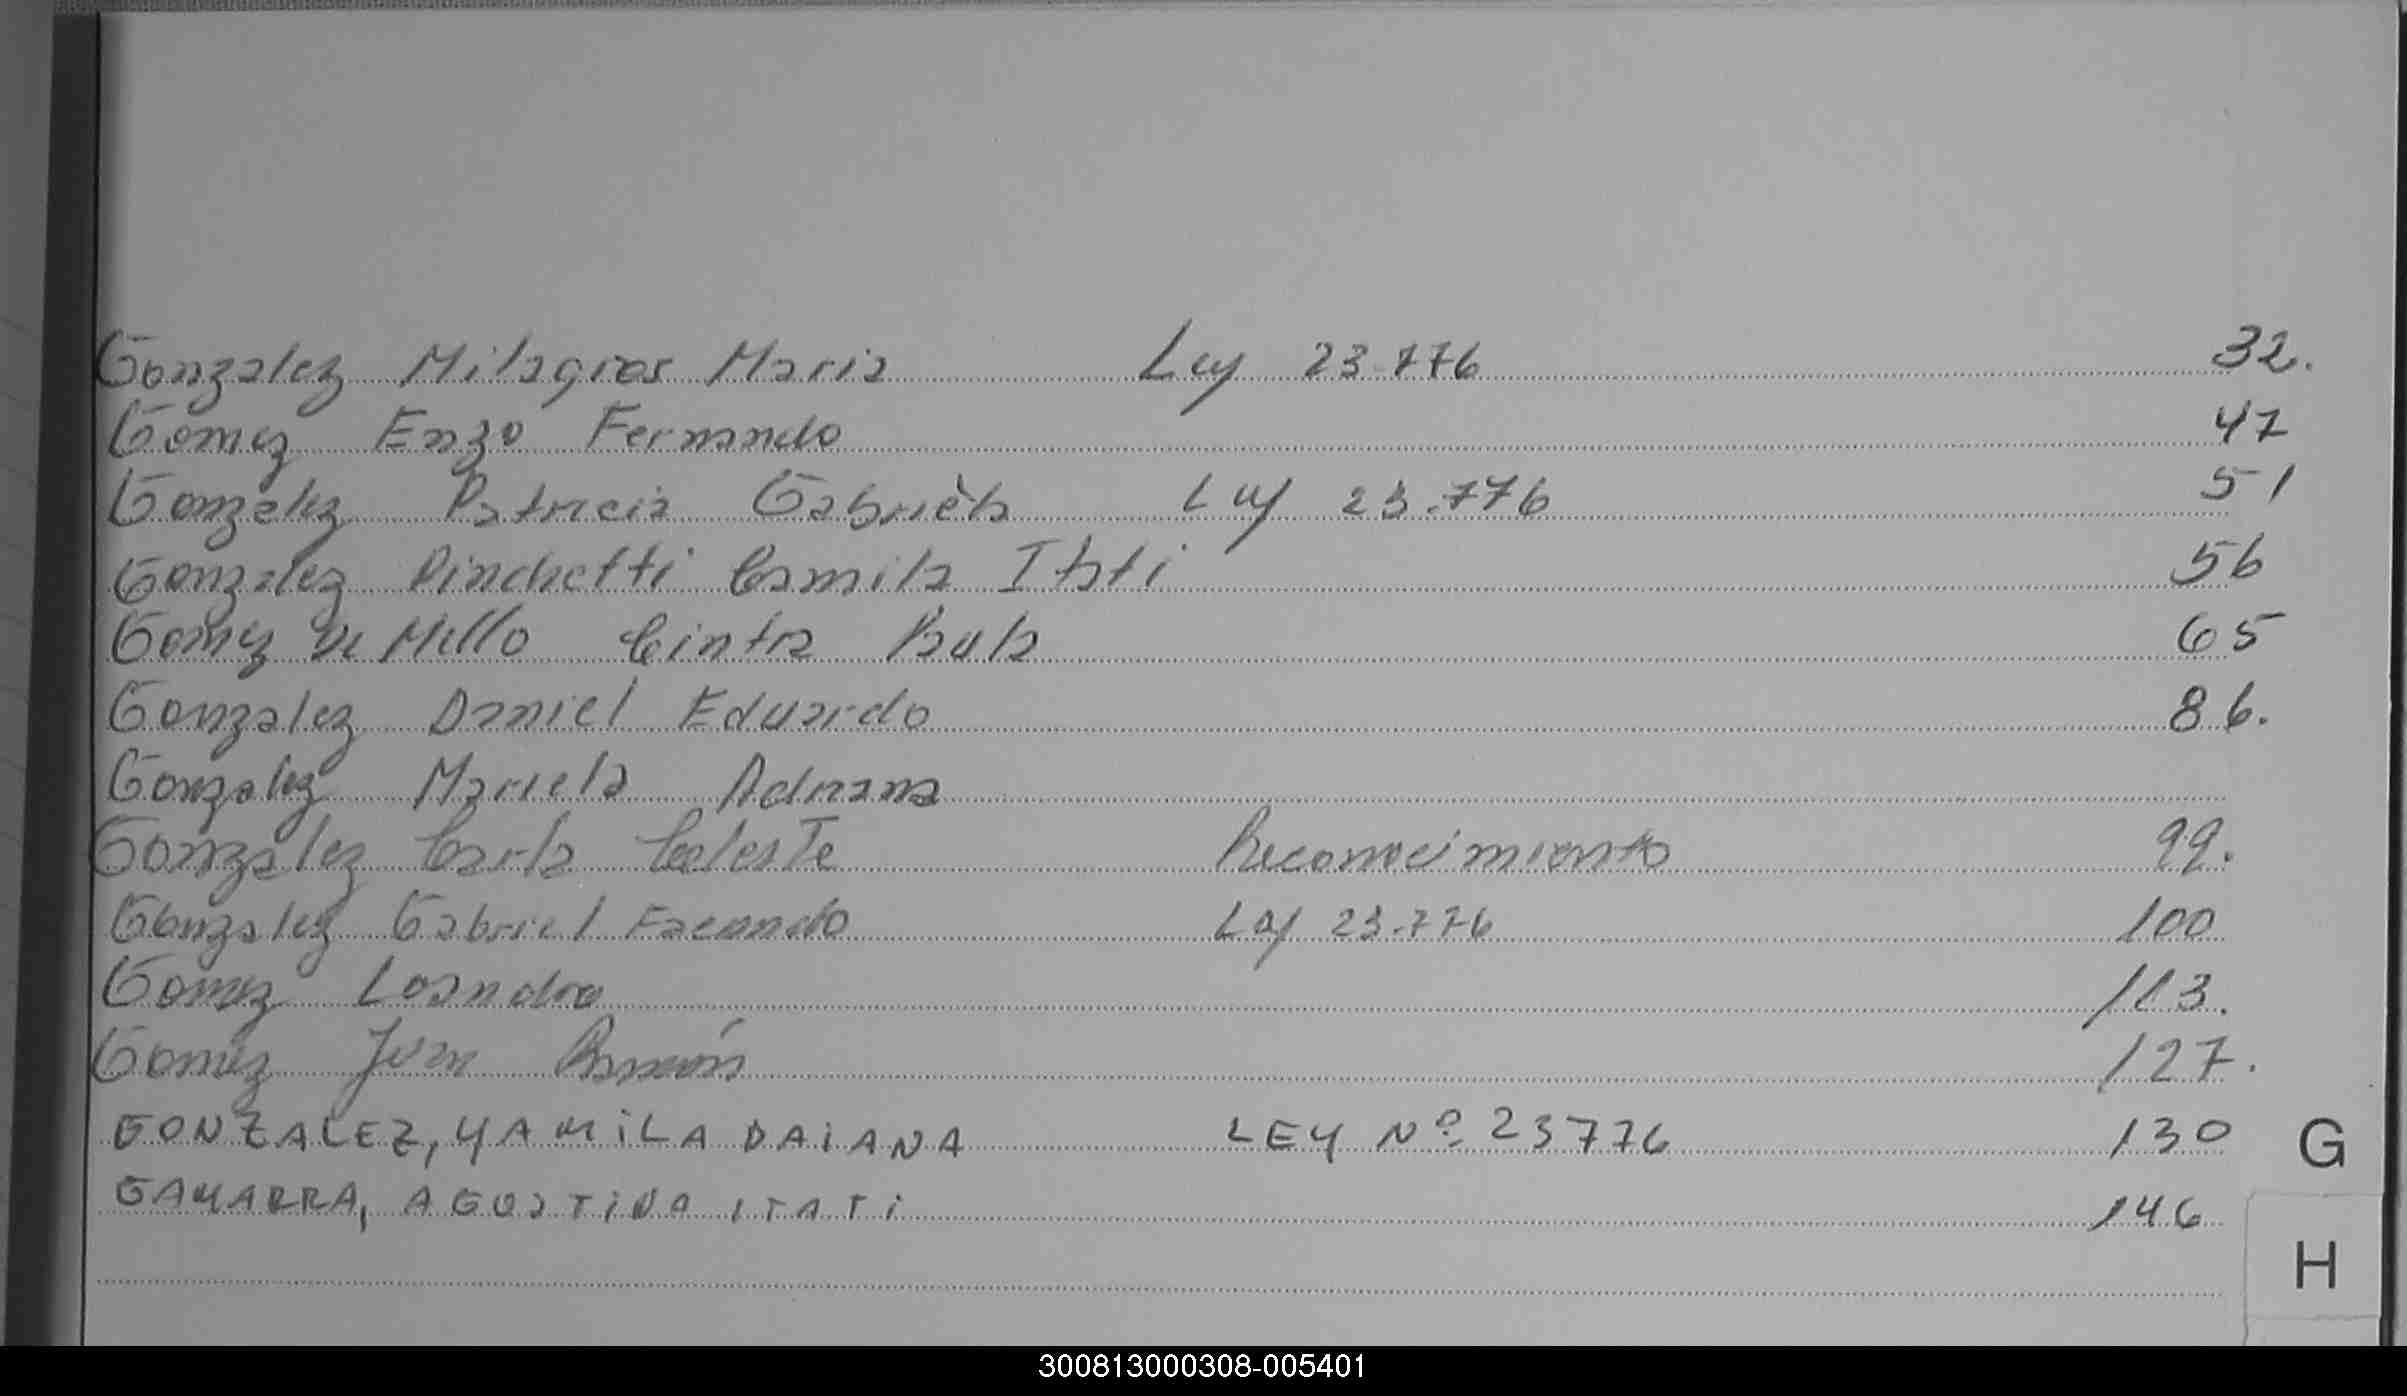 Gonzalez Milagros Maria Ley 23.776 32.
Gomez Enzo Fernando 47
Gonzalez Patricia Gabriela Ley 23.776 51
Gonzalez Pinchetti Camila Itati 56
Gomez de Mello Cintia Paula 65
Gonzalez Daniel Eduardo 86.
Gonzalez Mariela Adriana
Gonzalez Carla Celeste Reconocimiento 99.
Gonzalez Gabriel Facundo Ley 23.776 100
Gomez Leandro 113.
Gomez Juan Ramón 127.
GONZALEZ, YAMILA DAIANA LEY Nº 23776 130
G
GAMARRA, AGOSTINA ITATI 146
H
300813000308-005401